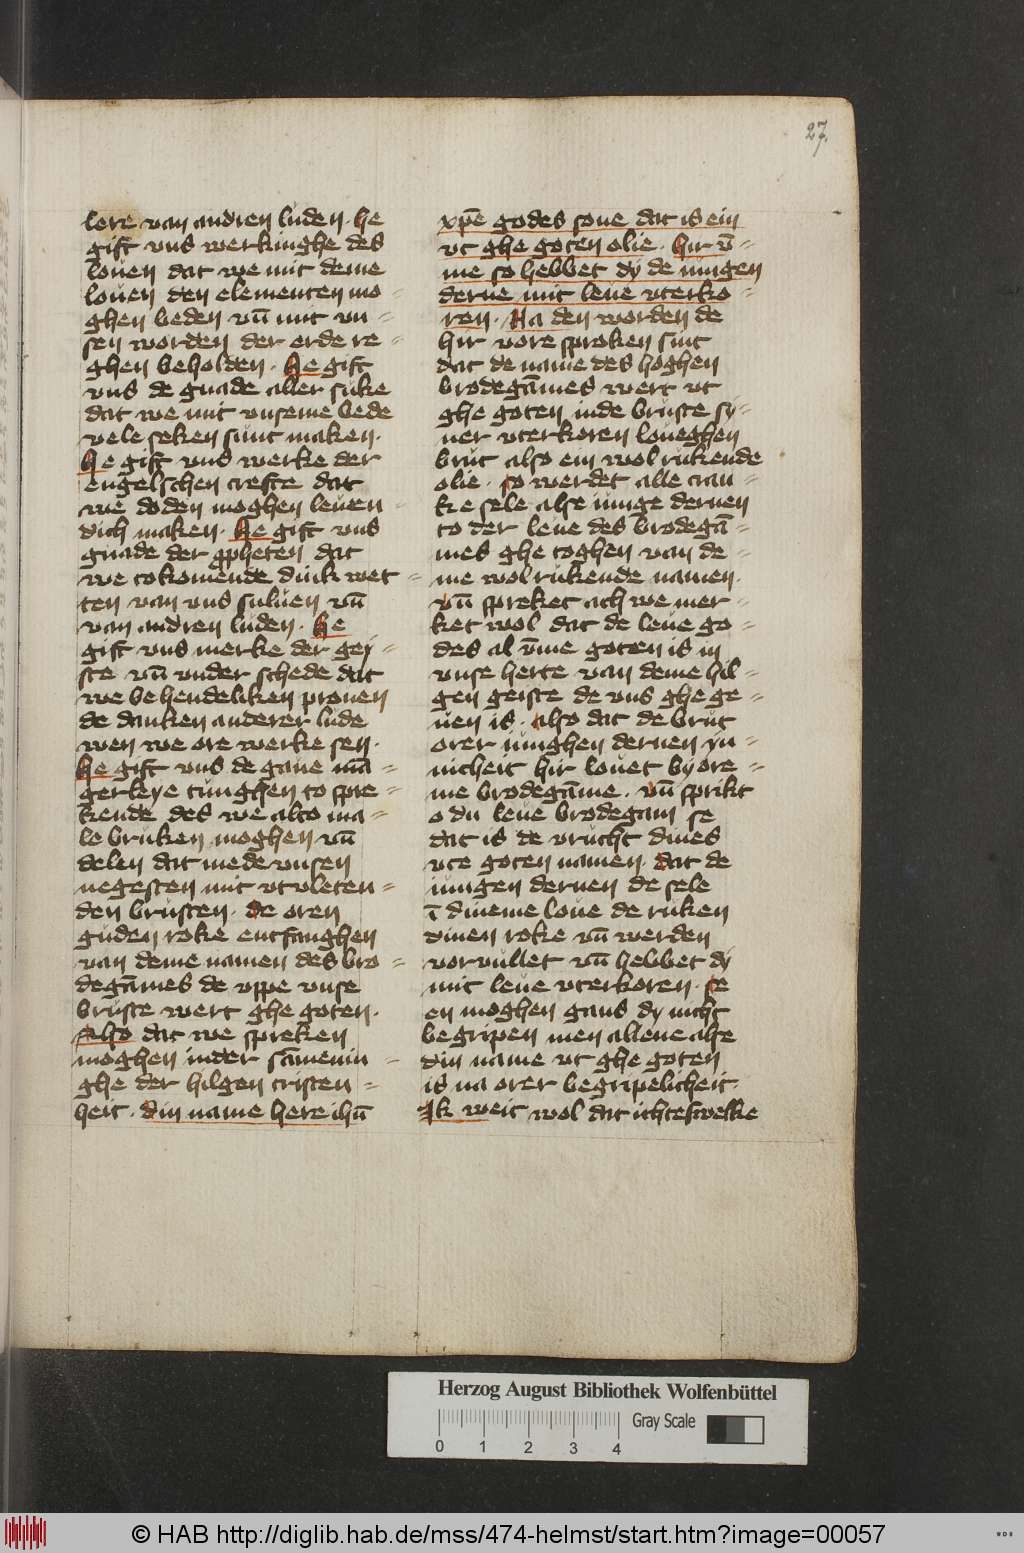 27.
lere van andren luden · he
gift vns werkinghe des
louen dat we mit deme
louen den elementen mo=
ghen beden vn̄ mit vn=
sen worden der erde re=
ghen beholden · he gift
vns de gnade aller suke
dat we mit vnseme bede
vele seken sunt maken·
he gift vns werke der
engelschen crefte dat
we doden moghen leuen=
dich maken · he gift vns
gnade der ꝓpheten dat
we tokomēde dink wet=
ten van vns suluen vn̄
van andren luden · he
gift vns merke der gey=
ste vn̄ vnder schede dat
we behendeliken prouen
de danken anderer lude
wen we ore werke sen·
he gift vns de gaue mā=
gerleye tunghen to spre=
kende des we alto ma=
le bruken moghen vn̄
delen dat mede vnsen
negesten mit vtvleten=
den brusten · de oren
guden roke entfanghen
van deme namen des bro=
degāmes de vppe vnse
bruste wert ghe goten·
Also dat we spreken
moghen inder sāmenin=
ghe der hilgen cristen=
heit · din name here ihū
xp̄e godes sone dat is ein
vt ghe goten olie · hir v̄=
me so hebbet dy de iungen
derne mit leue vterko=
ren · Na den worden de
hir vore sproken sint
dat de name des hoghen
brodegāmes wert vt
ghe goten inde bruste sy=
ner vterkoren loueghen
brut also ein wol rukende
olie · so werdet alle cran=
ke sele alse iunge dernen
to der leue des brodegā=
mes ghe toghen van de=
me wol rukende namen·
vn̄ spreket ach we mer=
ket wol dat de leue go=
des al v̄me goten is in
vnse herte van deme hil=
gen geiste de vns ghe ge=
uen is · also dat de brut
orer iunghen dernen yn=
nicheit hir louet by ore=
me brodegāme · vn̄ sprikt
o du leue brodegam se
dat is de vrucht dines
vte goten namen · dat de
iungen dernen de sele
ī dineme loue de ruken
dinen roke vn̄ werden
vorvullet vn̄ hebbet dy
mit leue vterkoren · se
en moghen gans dy nicht
begripen men allene alse
din name vt ghe goten
is na orer begripelicheit·
Ik weit wol dat ichteswelke
Herzog August Bibliothek Wolfenbüttel
Gray Scale
0 1 2 3 4
© HAB http://diglib.hab.de/mss/474-helmst/start.htm?image=00057